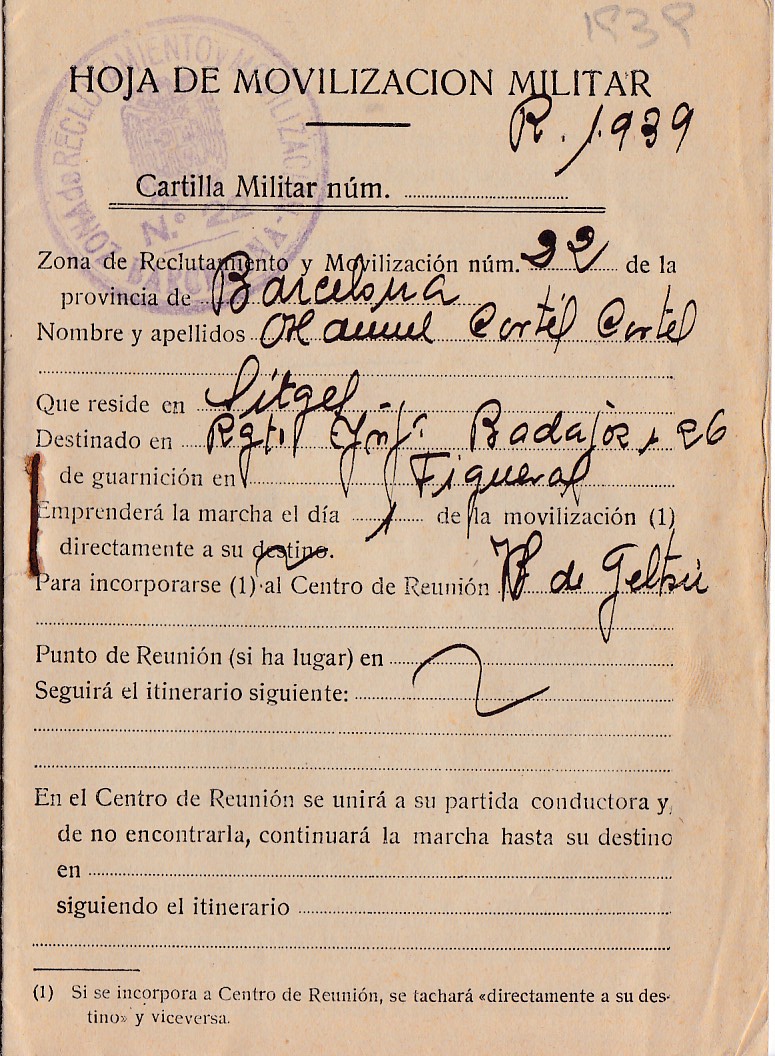 1939
HOJA DE MOVILIZACION MILITAR
R. 1.939
Cartilla Militar núm.
ZONA de RECLUTAMIENTO Y MOVILIZACION
N.º 22
BARCELONA
Zona de Reclutamiento y Movilización núm. 22 de la
provincia de Barcelona
Nombre y apellidos Manuel Cortés Cortés
Que reside en Sitges
Destinado en Rgto Infª Badajoz, 26
de guarnición en Figueras
Emprenderá la marcha el día 1 de la movilización (1)
directamente a su destino.
Para incorporarse (1) al Centro de Reunión de Geltrú
Punto de Reunión (si ha lugar) en
Seguirá el itinerario siguiente:
En el Centro de Reunión se unirá a su partida conductora y,
de no encontrarla, continuará la marcha hasta su destino
en
siguiendo el itinerario
(1) Si se incorpora a Centro de Reunión, se tachará «directamente a su des-
tino» y viceversa.